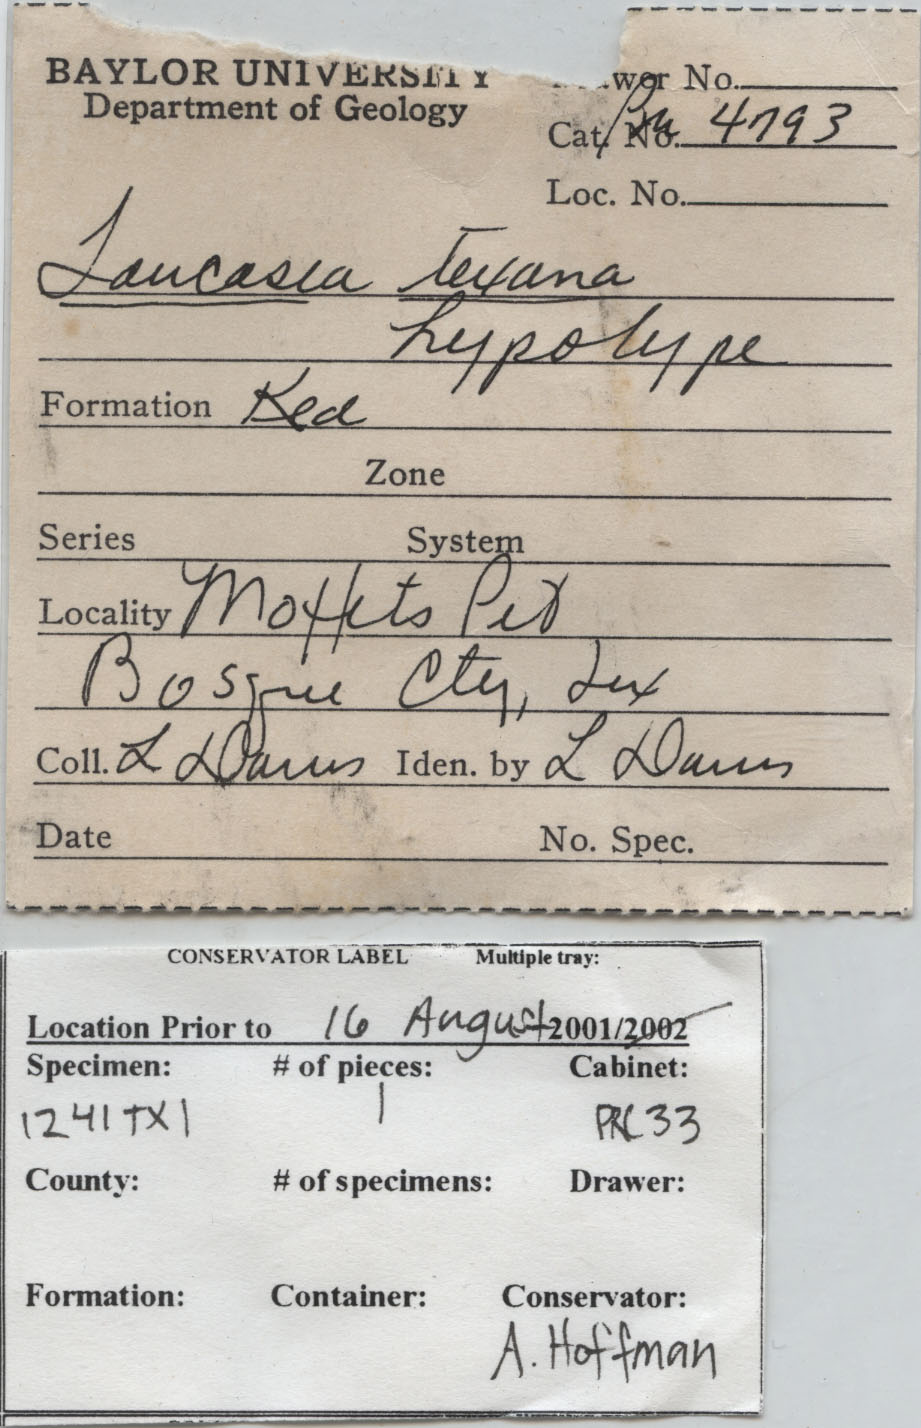 BAYLOR UNIVERSITY
Department of Geology
Drawer No.
Cat. No. Bu 4793
Loc. No.
Toucasia texana
hypotype
Formation Ked
Zone
Series System
Locality Moffets Pit
Bosque Cty, Tex
Coll. L Davis Iden. by L Davis
Date No. Spec.
CONSERVATOR LABEL Multiple tray:
Location Prior to 16 August 2001/2002
Specimen: # of pieces: Cabinet:
1241TX1 1 PRC33
County: # of specimens: Drawer:
Formation: Container: Conservator:
A. Hoffman